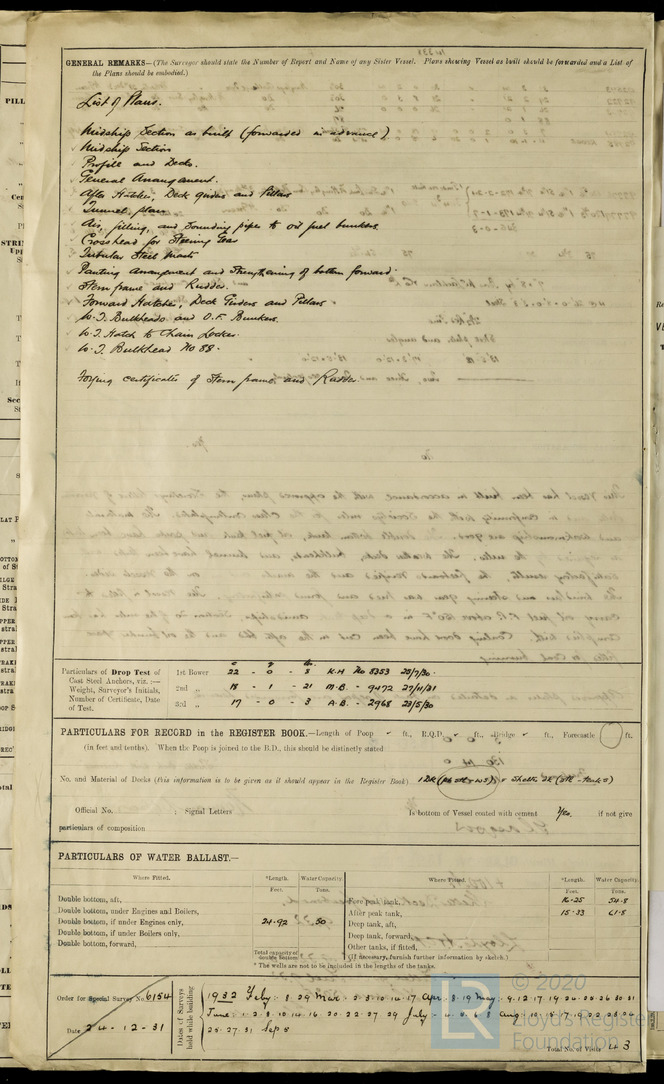 GENERAL REMARKS—(The Surveyor should state the Number of Report and Name of any Sister Vessel. Plans shewing Vessel as built should be forwarded and a List of
the Plans should be embodied.)
List of Plans.
Midship Section as built (forwarded in advance)
Midship Section
Profile and Decks.
General Arrangement.
After Hatches, Deck girders and Pillars
Tunnel plan
Air, filling, and sounding pipes to oil fuel bunkers.
Crosshead for Steering Gear
Tubular Steel Masts
Panting Arrangement and Strengthening of bottom forward.
Stern frame and Rudder.
Forward Hatches, Deck Girders and Pillars.
W.T. Bulkheads and O.F. Bunkers.
W.T. Hatch to Chain Locker.
W.T. Bulkhead No 88.
Forging certificates of Stern frame and Rudder
Particulars of Drop Test of
Cast Steel Anchors, viz. :—
Weight, Surveyor's Initials,
Number of Certificate, Date
of Test.
1st Bower 22 - 0 - 8 K.H No 8353 28/7/30.
2nd „ 18 - 1 - 21 M.B. - 9472 27/11/31
3rd „ 17 - 0 - 3 A.B. - 2968 23/5/30
PARTICULARS FOR RECORD in the REGISTER BOOK.—Length of Poop ft., R.Q.D. ft., Bridge ft., Forecastle ft.
(in feet and tenths). When the Poop is joined to the B.D., this should be distinctly stated
No. and Material of Decks (this information is to be given as it should appear in the Register Book) 1 Dk
Official No. ; Signal Letters Is bottom of Vessel coated with cement Yes. if not give
particulars of composition
PARTICULARS OF WATER BALLAST.—
Where Fitted. *Length. Water Capacity. Where Fitted. *Length. Water Capacity.
Feet. Tons. Feet. Tons.
Double bottom, aft, Fore peak tank, 16.25 54.8
Double bottom, under Engines and Boilers, After peak tank, 15.33 61.8
Double bottom, if under Engines only, 24.92 50 Deep tank, aft,
Double bottom, if under Boilers only, Deep tank, forward,
Double bottom, forward, Other tanks, if fitted,
Total capacity of double bottom (If necessary, furnish further information by sketch.)
* The wells are not to be included in the lengths of the tanks.
Order for Special Survey No. 6154
Date 24-12-31
Dates of Surveys
held while building
1932 Feby: 8 29 Mar: 3 8 10 14 17 Apr: 8 19 May: 9 12 17 19 24 25 26 30 31
June: 1 2 8 10 14 16 20 22 27 29 July - 4 6 8 Aug: 10 15 17 19 22 23 24
25 27 31 Sep 5
Total No. of Visits 43
© 2020
LR
Lloyd's Register
Foundation